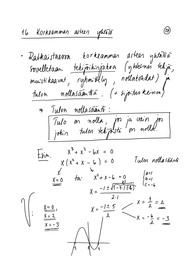 16 Korkeamman asteen yhtälö
• Ratkaistaessa korkeamman asteen yhtälöitä
sovelletaan tekijöihinjakoa (yhteinen tekijä,
muistikaavat, ryhmittely, nollakohdat) ja
tulon nollasääntöä.
→ Tulon nollasääntö:
Tulo on nolla, jos ja vain jos
jokin tulon tekijöistä on nolla.
Esim. x³ + x² - 6x = 0
x(x² + x - 6) = 0 Tulon nollasääntö
x = 0 tai x² + x - 6 = 0
a=1
b=1
c=-6
2·1
x = -1 ± 5
2
x = 4/2 = 2
x = -6/2 = -3
V:
x = 0
x = 2
x = -3